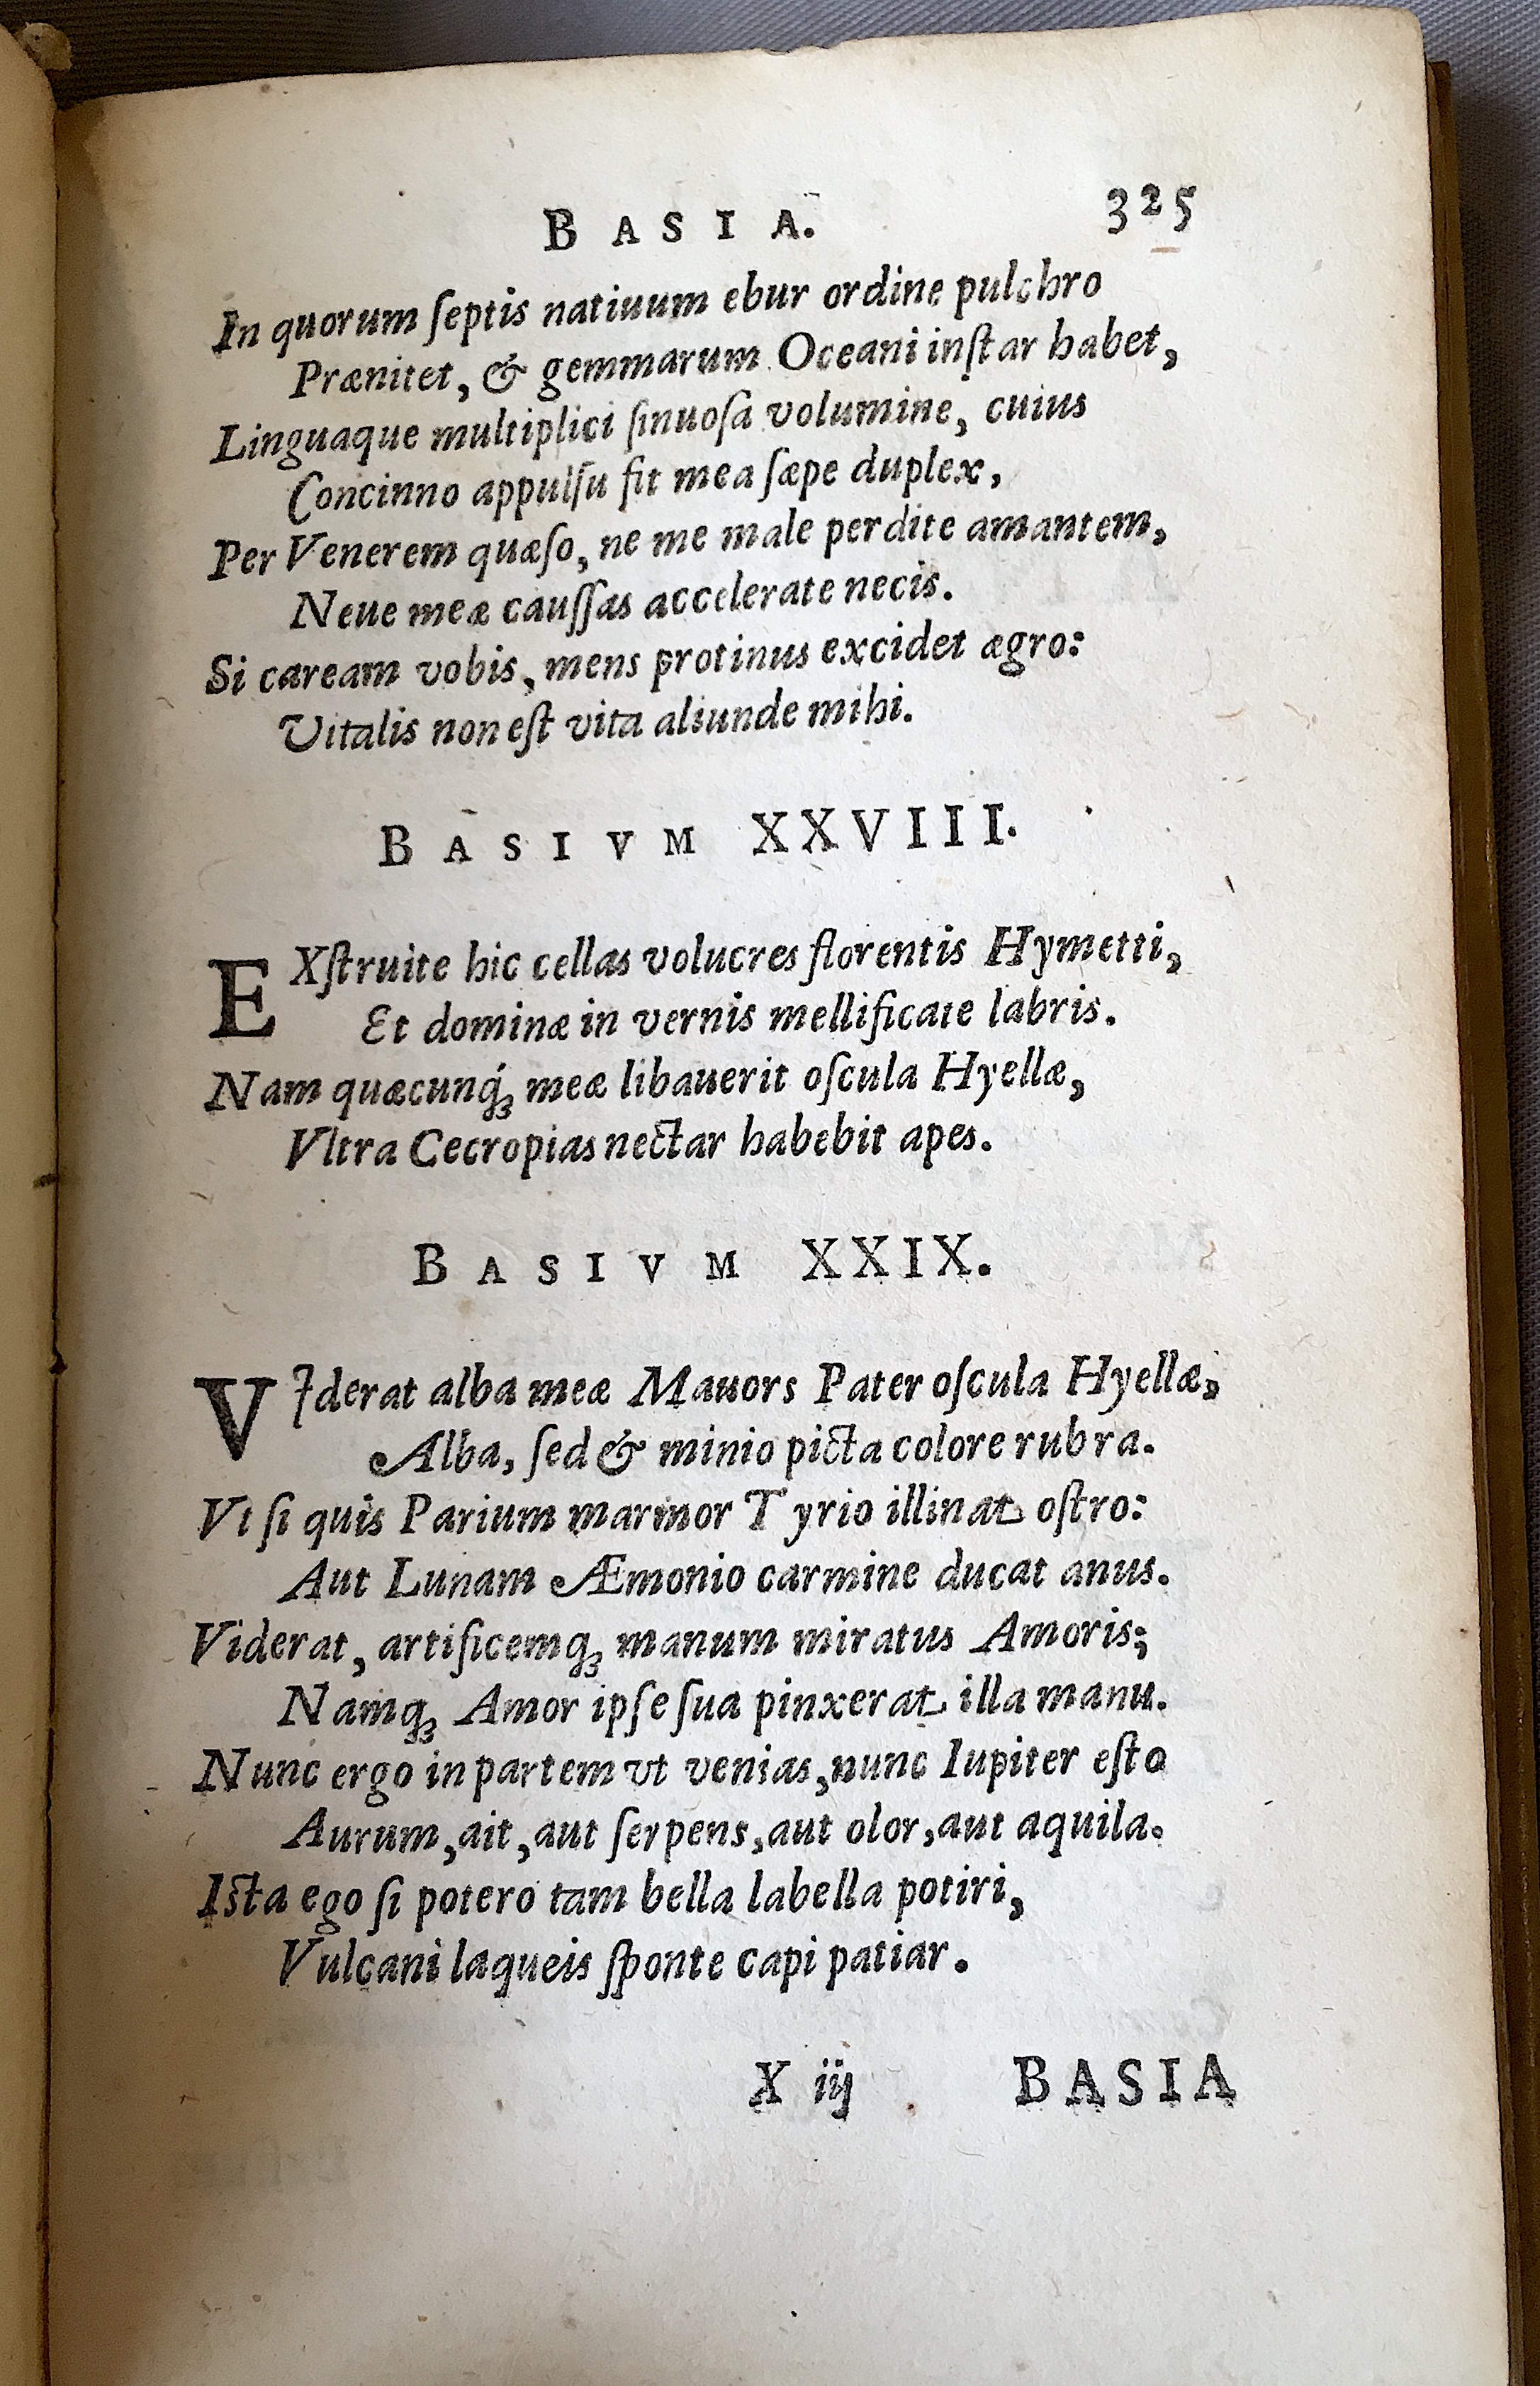 BASIA. 325
In quorum ſeptis natiuum ebur ordine pulchro
Prænitet, & gemmarum Oceani inſtar habet,
Linguaque multiplici ſinuoſa volumine, cuius
Concinno appulſu fit mea ſæpe duplex,
Per Venerem quæſo, ne me male perdite amantem,
Neue meæ cauſſas accelerate necis.
Si caream vobis, mens protinus excidet ægro:
Vitalis non eſt vita aliunde mihi.
BASIVM XXVIII.
EXſtruite hic cellas volucres florentis Hymetti,
Et dominæ in vernis mellificate labris.
Nam quæcunq́; meæ libauerit oſcula Hyellæ,
Vltra Cecropias nectar habebit apes.
BASIVM XXIX.
VIderat alba meæ Mauors Pater oſcula Hyellæ,
Alba, ſed & minio picta colore rubra.
Vt ſi quis Parium marmor Tyrio illinat oſtro:
Aut Lunam Æmonio carmine ducat anus.
Viderat, artificemq; manum miratus Amoris;
Namq; Amor ipſe ſua pinxerat illa manu.
Nunc ergo in partem vt venias, nunc Iupiter eſto
Aurum, ait, aut ſerpens, aut olor, aut aquila.
Iſta ego ſi potero tam bella labella potiri,
Vulcani laqueis ſponte capi patiar.
X iij BASIA